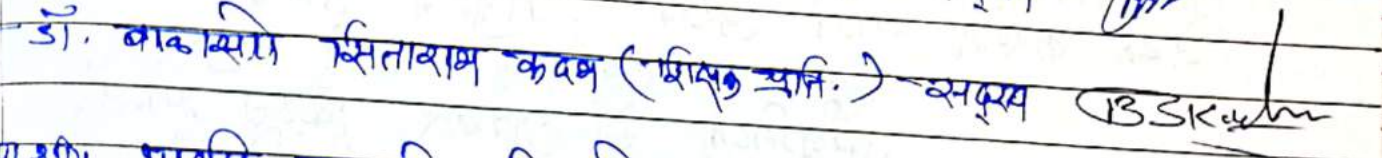 डॉ. बाळासो सिताराम कदम (शिक्षक प्रति.) सदस्य BSKadam